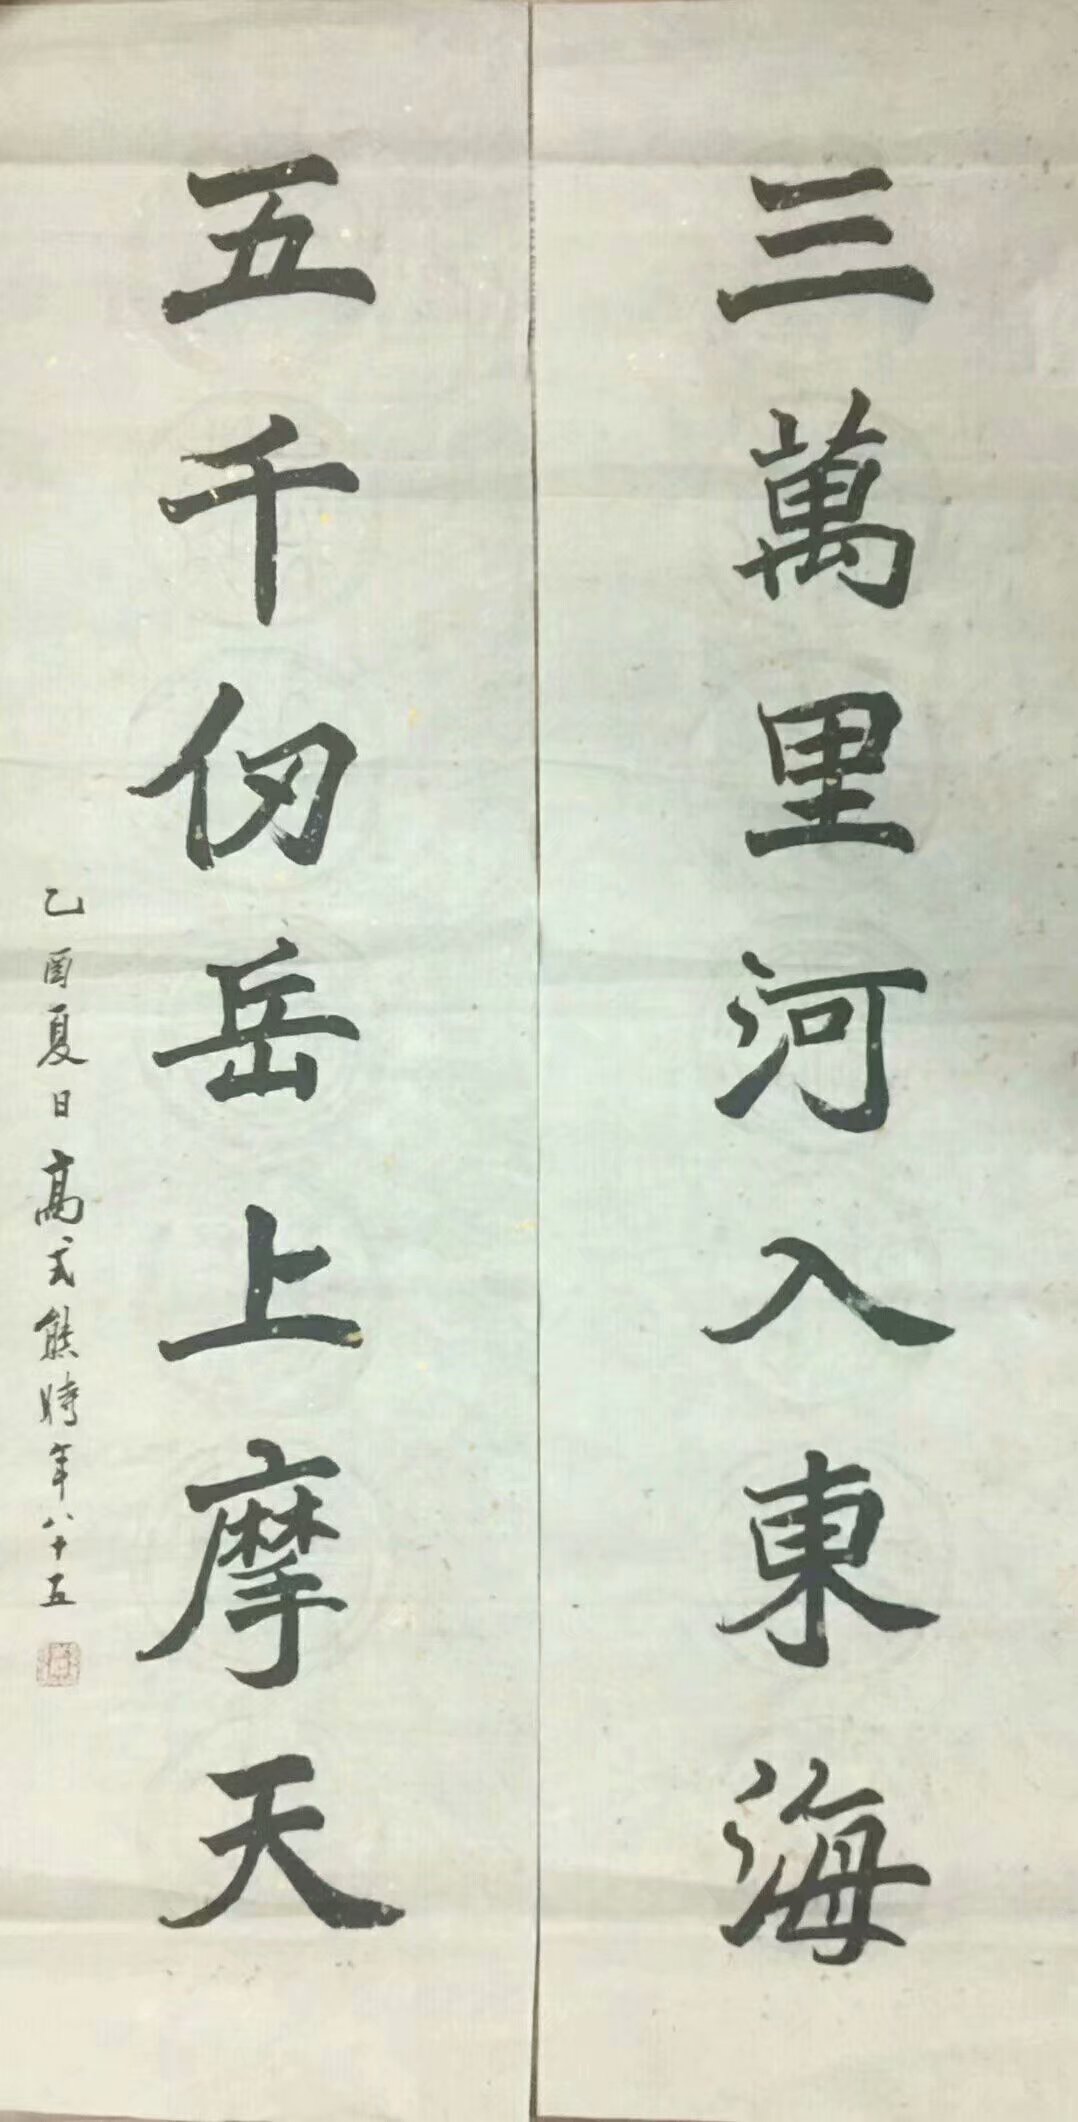 三萬里河入東海
五千仞岳上摩天
乙酉夏日高式熊時年八十五